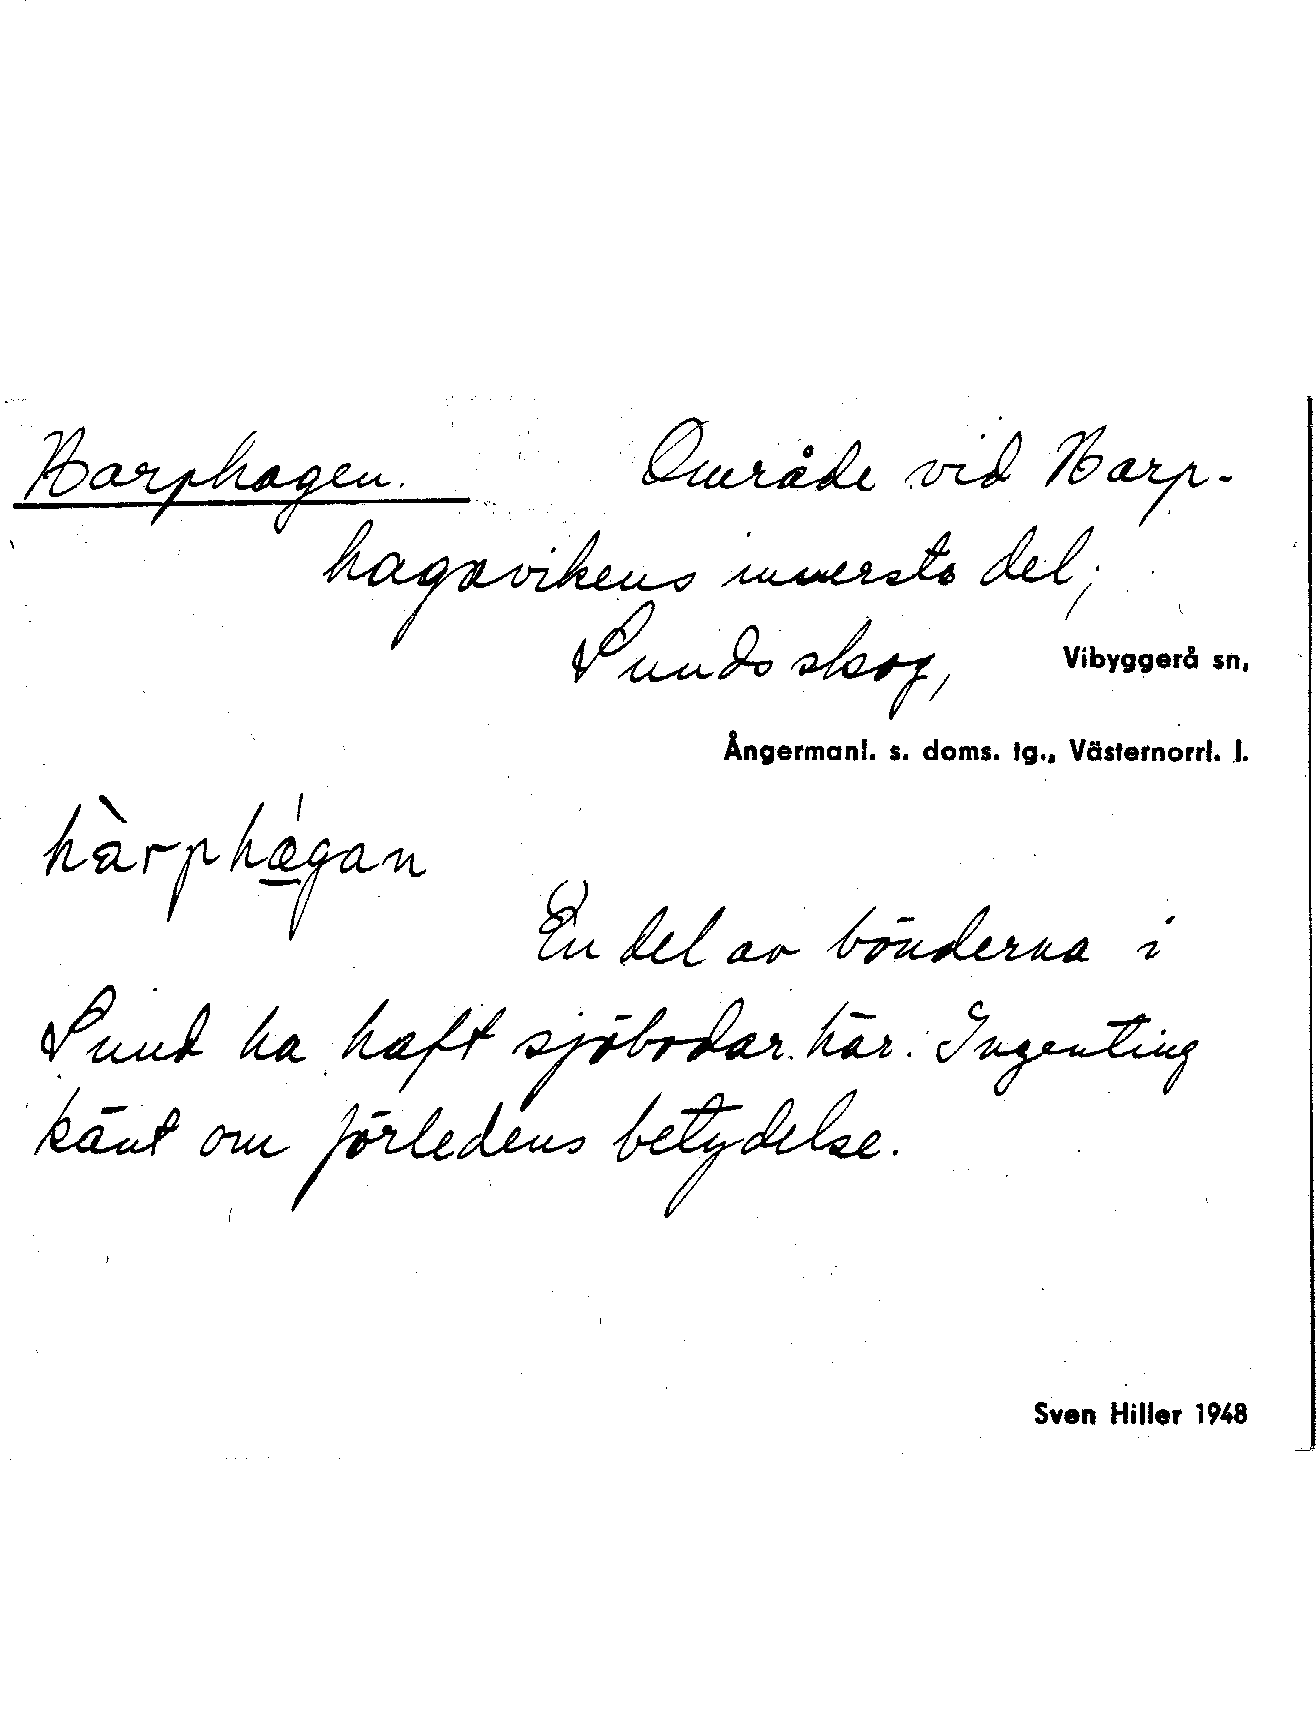 Harphagen. Område vid Harp-
hagavikens innersta del;
Sunds skog, Vibyggerå sn,
Ångermanl. s. doms. tg., Västernorrl. l.
hàrphágan
En del av bönderna i
Sund ha haft sjöbodar här. Ingenting
känt om förledens betydelse.
Sven Hiller 1948